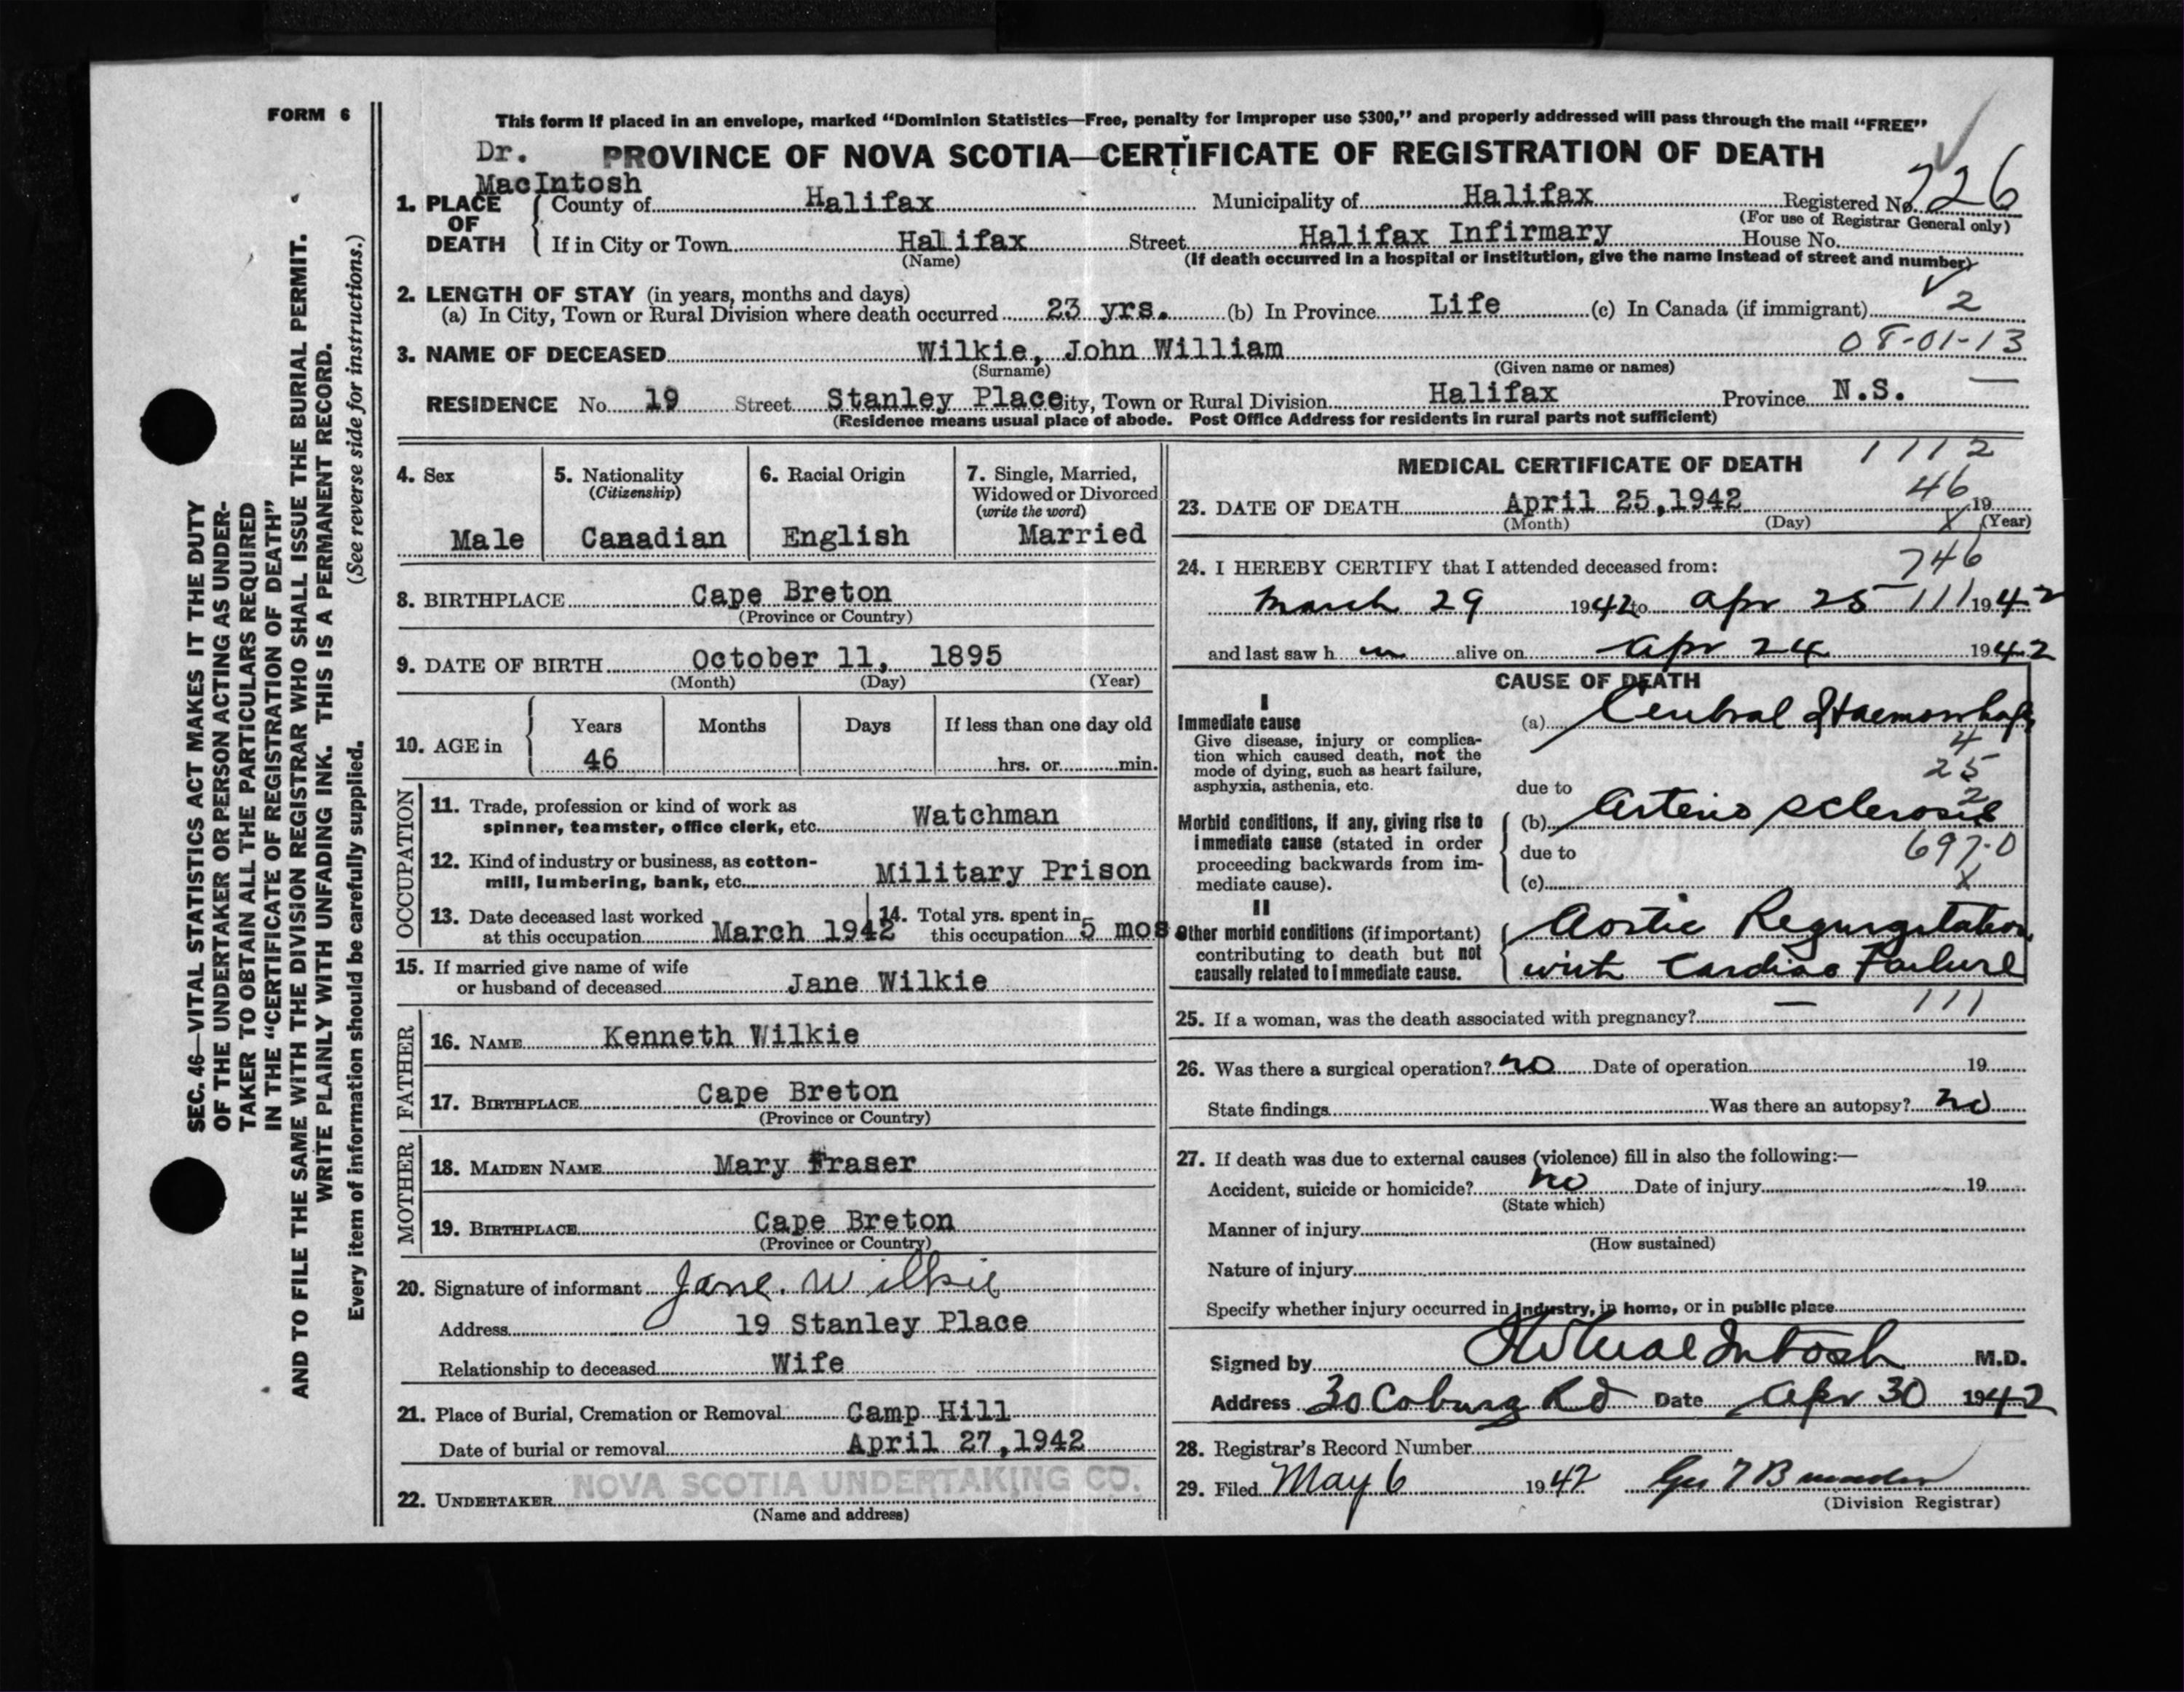 FORM 6
This form if placed in an envelope, marked “Dominion Statistics—Free, penalty for improper use $300,” and properly addressed will pass through the mail “FREE”
Dr.
MacIntosh
PROVINCE OF NOVA SCOTIA—CERTIFICATE OF REGISTRATION OF DEATH
1. PLACE OF DEATH
County of Halifax Municipality of Halifax Registered No. 726
(For use of Registrar General only)
If in City or Town Halifax Street Halifax Infirmary House No.
(Name) (If death occurred in a hospital or institution, give the name instead of street and number)
2. LENGTH OF STAY (in years, months and days)
(a) In City, Town or Rural Division where death occurred 23 yrs. (b) In Province Life (c) In Canada (if immigrant) 2
08-01-13
3. NAME OF DECEASED Wilkie, John William
(Surname) (Given name or names)
RESIDENCE No. 19 Street Stanley Place City, Town or Rural Division Halifax Province N.S.
(Residence means usual place of abode. Post Office Address for residents in rural parts not sufficient)
4. Sex
Male
5. Nationality
(Citizenship)
Canadian
6. Racial Origin
English
7. Single, Married,
Widowed or Divorced
(write the word)
Married
8. BIRTHPLACE Cape Breton
(Province or Country)
9. DATE OF BIRTH October 11, 1895
(Month) (Day) (Year)
10. AGE in
Years Months Days If less than one day old
46 hrs. or min.
OCCUPATION
11. Trade, profession or kind of work as
spinner, teamster, office clerk, etc. Watchman
12. Kind of industry or business, as cotton-
mill, lumbering, bank, etc. Military Prison
13. Date deceased last worked
at this occupation March 1942
14. Total yrs. spent in
this occupation 5 mos
15. If married give name of wife
or husband of deceased Jane Wilkie
FATHER
16. NAME Kenneth Wilkie
17. BIRTHPLACE Cape Breton
(Province or Country)
MOTHER
18. MAIDEN NAME Mary Fraser
19. BIRTHPLACE Cape Breton
(Province or Country)
20. Signature of informant Jane. Wilkie
Address 19 Stanley Place
Relationship to deceased Wife
21. Place of Burial, Cremation or Removal Camp Hill
Date of burial or removal April 27,1942
22. UNDERTAKER NOVA SCOTIA UNDERTAKING CO.
(Name and address)
MEDICAL CERTIFICATE OF DEATH 1112
46
23. DATE OF DEATH April 25,1942 19
(Month) (Day) X (Year)
24. I HEREBY CERTIFY that I attended deceased from: 746
March 29 1942 to Apr 25 111 1942
and last saw h m alive on Apr 24 1942
CAUSE OF DEATH
I
Immediate cause
Give disease, injury or complica-
tion which caused death, not the
mode of dying, such as heart failure,
asphyxia, asthenia, etc.
(a) Cerebral Haemorrhage
4
25
due to
2
Morbid conditions, if any, giving rise to
immediate cause (stated in order
proceeding backwards from im-
mediate cause).
(b) Arterio Sclerosis
due to 697.0
(c) X
II
Other morbid conditions (if important)
contributing to death but not
causally related to immediate cause.
Aortic Regurgitation
with Cardiac Failure
25. If a woman, was the death associated with pregnancy? — 111
26. Was there a surgical operation? no Date of operation 19
State findings Was there an autopsy? no
27. If death was due to external causes (violence) fill in also the following:—
Accident, suicide or homicide? no Date of injury 19
(State which)
Manner of injury
(How sustained)
Nature of injury
Specify whether injury occurred in industry, in home, or in public place
Signed by MacIntosh M.D.
Address 30 Coburg Rd Date Apr 30 1942
28. Registrar's Record Number
29. Filed May 6 1942
(Division Registrar)
SEC. 46—VITAL STATISTICS ACT MAKES IT THE DUTY
OF THE UNDERTAKER OR PERSON ACTING AS UNDER-
TAKER TO OBTAIN ALL THE PARTICULARS REQUIRED
IN THE “CERTIFICATE OF REGISTRATION OF DEATH”
AND TO FILE THE SAME WITH THE DIVISION REGISTRAR WHO SHALL ISSUE THE BURIAL PERMIT.
WRITE PLAINLY WITH UNFADING INK. THIS IS A PERMANENT RECORD.
Every item of information should be carefully supplied. (See reverse side for instructions.)